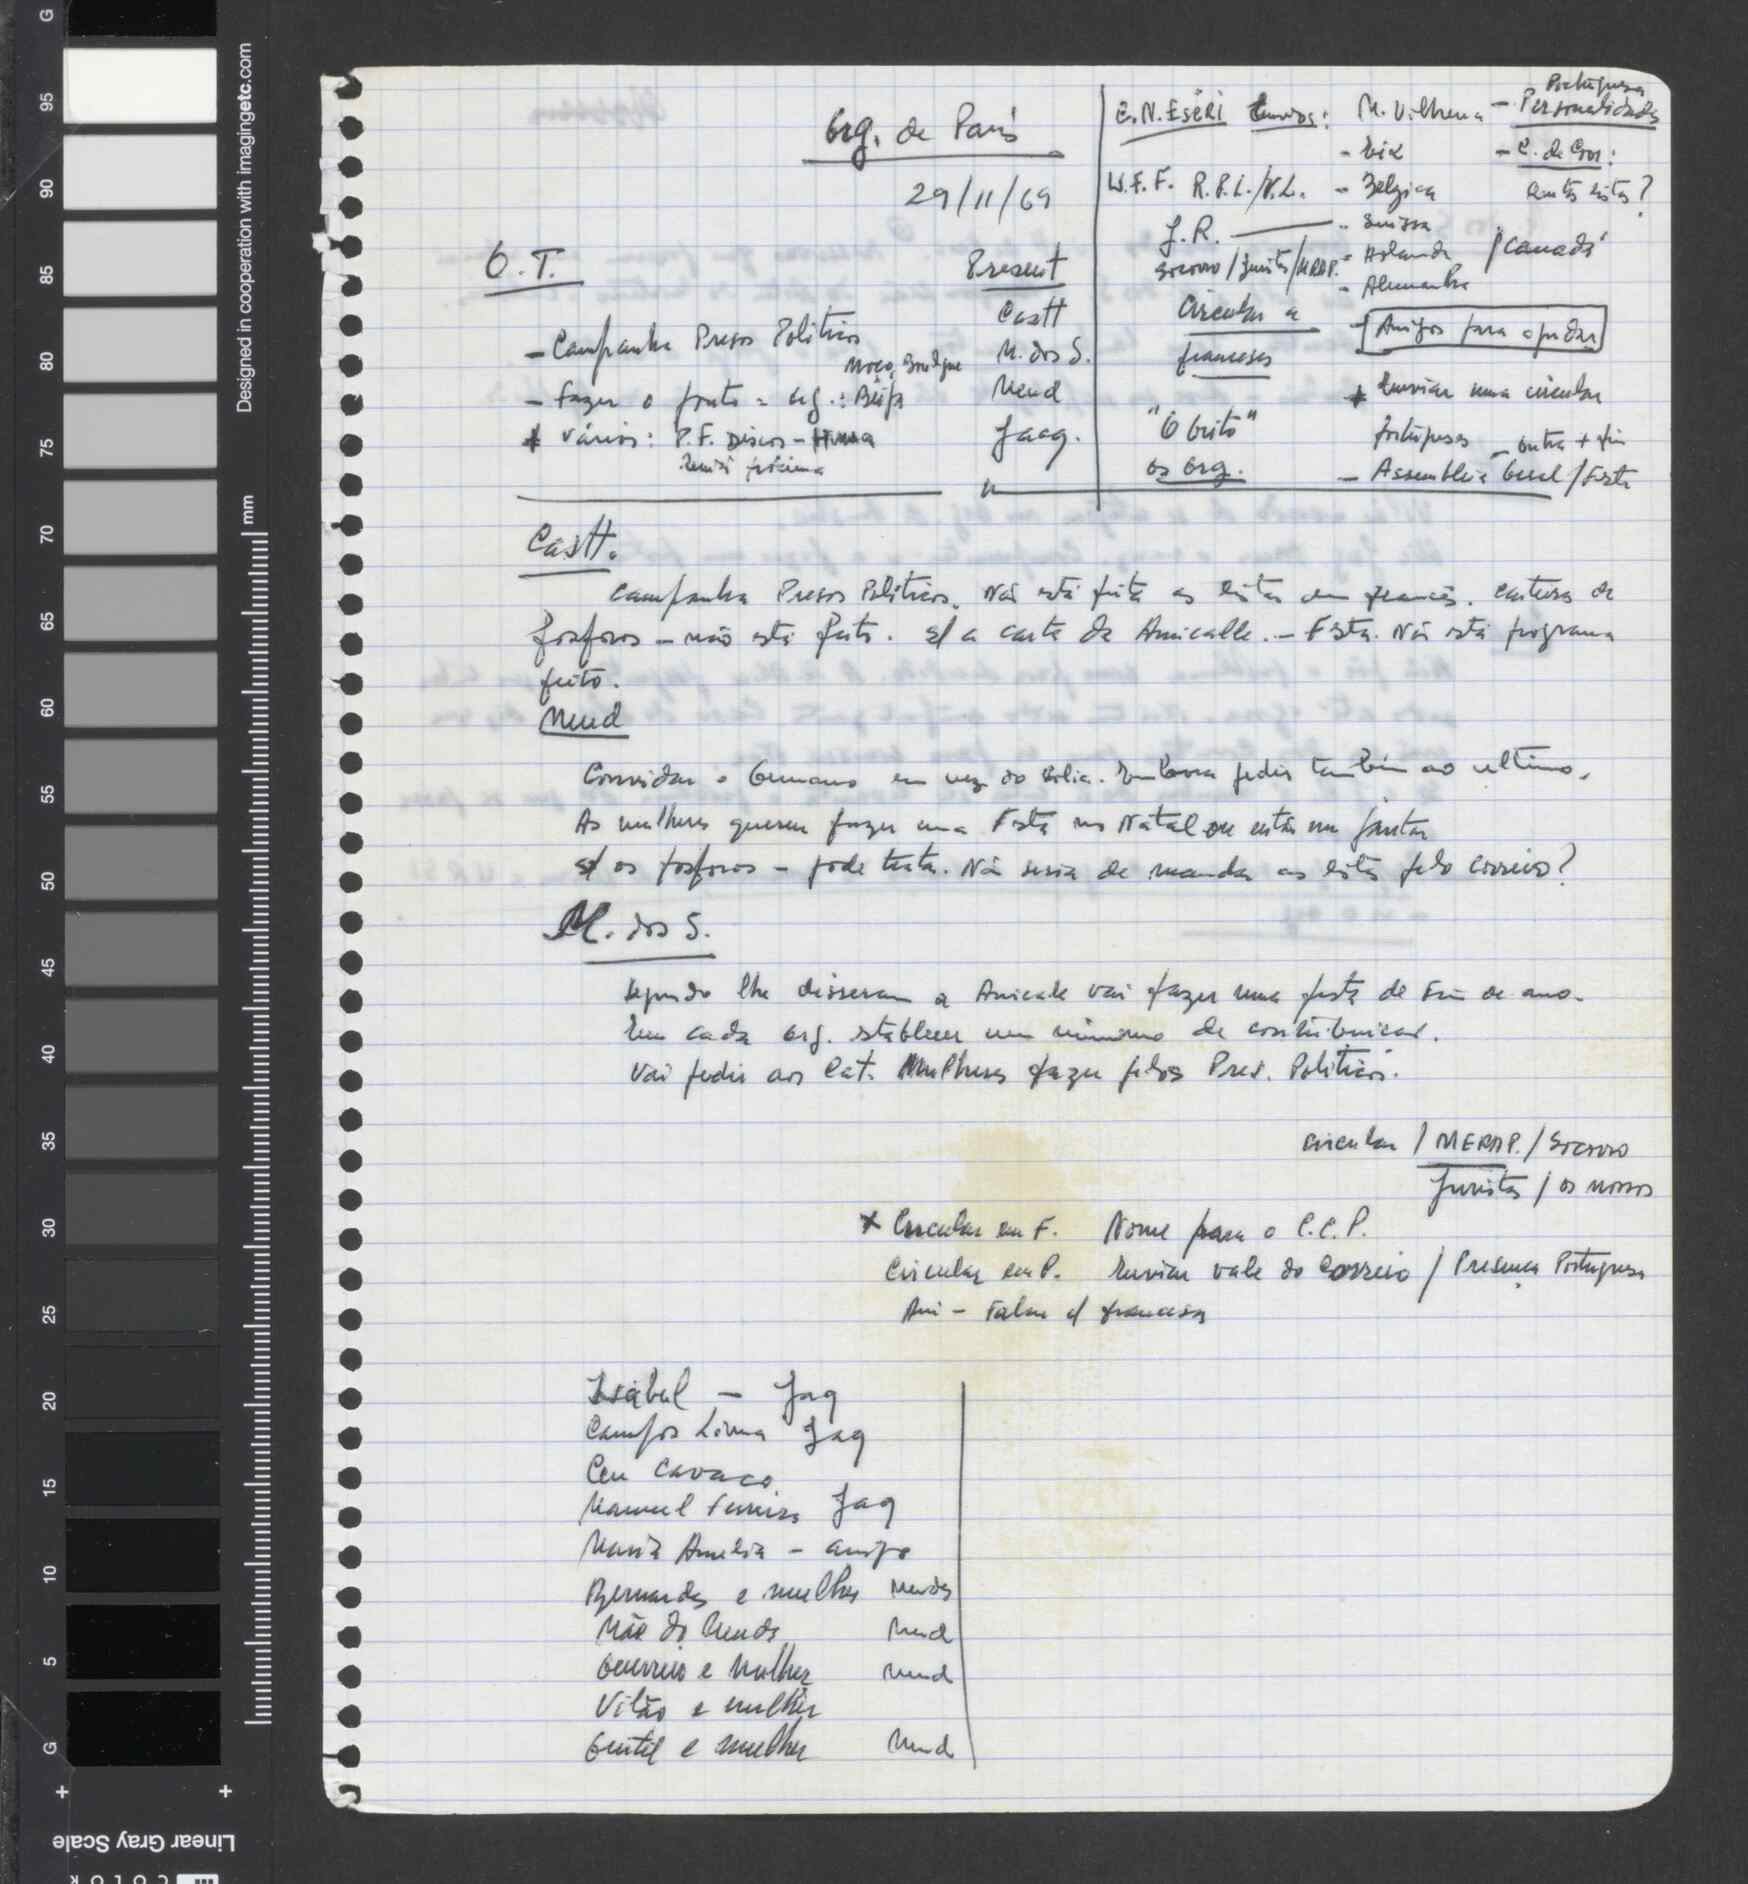 Org. de Paris
29/11/69
O. T.
- Campanha Presos Politicos
- Fazer o ponto = Org.:
+ Vários: P.F. Discos -
Present
Castt
M. dos S.
Mend
Jacq.
Envios: M. Vilhena - Portuguesa Personalidades
- Bélgica
- Suissa
- Holanda / Canadá
- Alemanha
W.F.F. R.P.L./V.L.
J.R.
Socorro / Juristas / MRAP.
Circular a
franceses
"O Grito"
os Org.
Amigos para ajudar
+ Enviar uma circular
portugueses - outra + fin
- Assembleia Geral / Festa
Castt.
Campanha Presos Politicos. Não está feita as listas em francês. Carteira de
fosforos - não está feito. s/ a carta da Amicalle. - Festa. Não está programa
feito.
Mend
Convidar o Germano em vez do. Embora pedir também ao ultimo.
As mulheres querem fazer uma Festa no Natal ou então um jantar
s/ os fosforos - pode tratar. Não seria de mandar as listas pelo correio?
M. dos S.
Segundo lhe disseram a Amicale vai fazer uma festa de Fim de ano.
Em cada Org. stablecer um minimo de contribuicão.
Vai pedir aos Cat. Mulheres fazer pelos Pres. Politicos.
circular / MERAP. / Socorro
Juristas / os nossos
+ Circular em F. Nome para o C.C.P.
Circular em P. Enviar vale do Correio / Presença Portuguesa
Ami - Falar c/ franceses
Isabel - Jaq
Campos Lima Jaq
Ceu Cavaco
Manuel Ferreira Jaq
Maria Amelia - amigo
Bernardes e mulher Mendes
Mãe do Mendes Mend
Guerreiro e Mulher Mend
Vilão e mulher
Gentil e mulher Mend
Designed in cooperation with imagingetc.com
mm
G
95
90
85
80
75
70
65
60
55
50
45
40
35
30
25
20
15
10
5
G
Linear Gray Scale